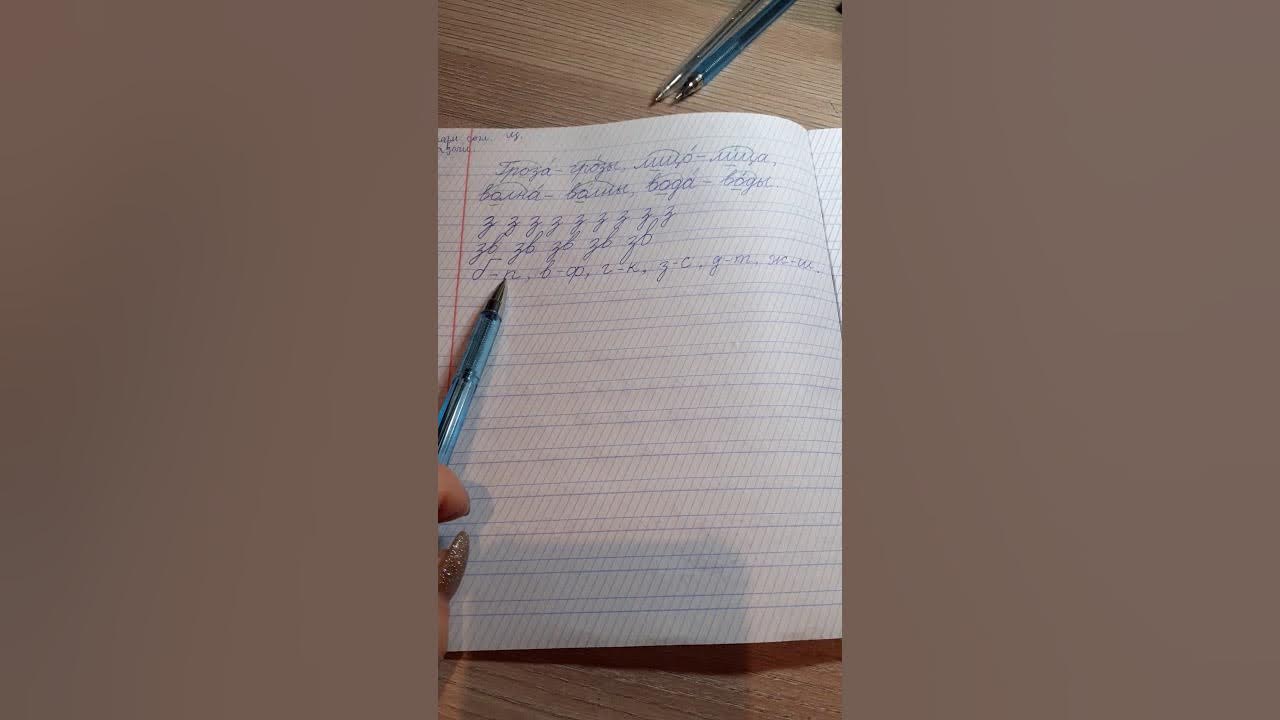 согл. из.
Гроза́ - гро́зы, лицо́ - ли́ца,
волна́ - волны, вода́ - во́ды.
з з з з з з з з з
зв зв зв зв зв
б-п, в-ф, г-к, з-с, д-т, ж-ш.